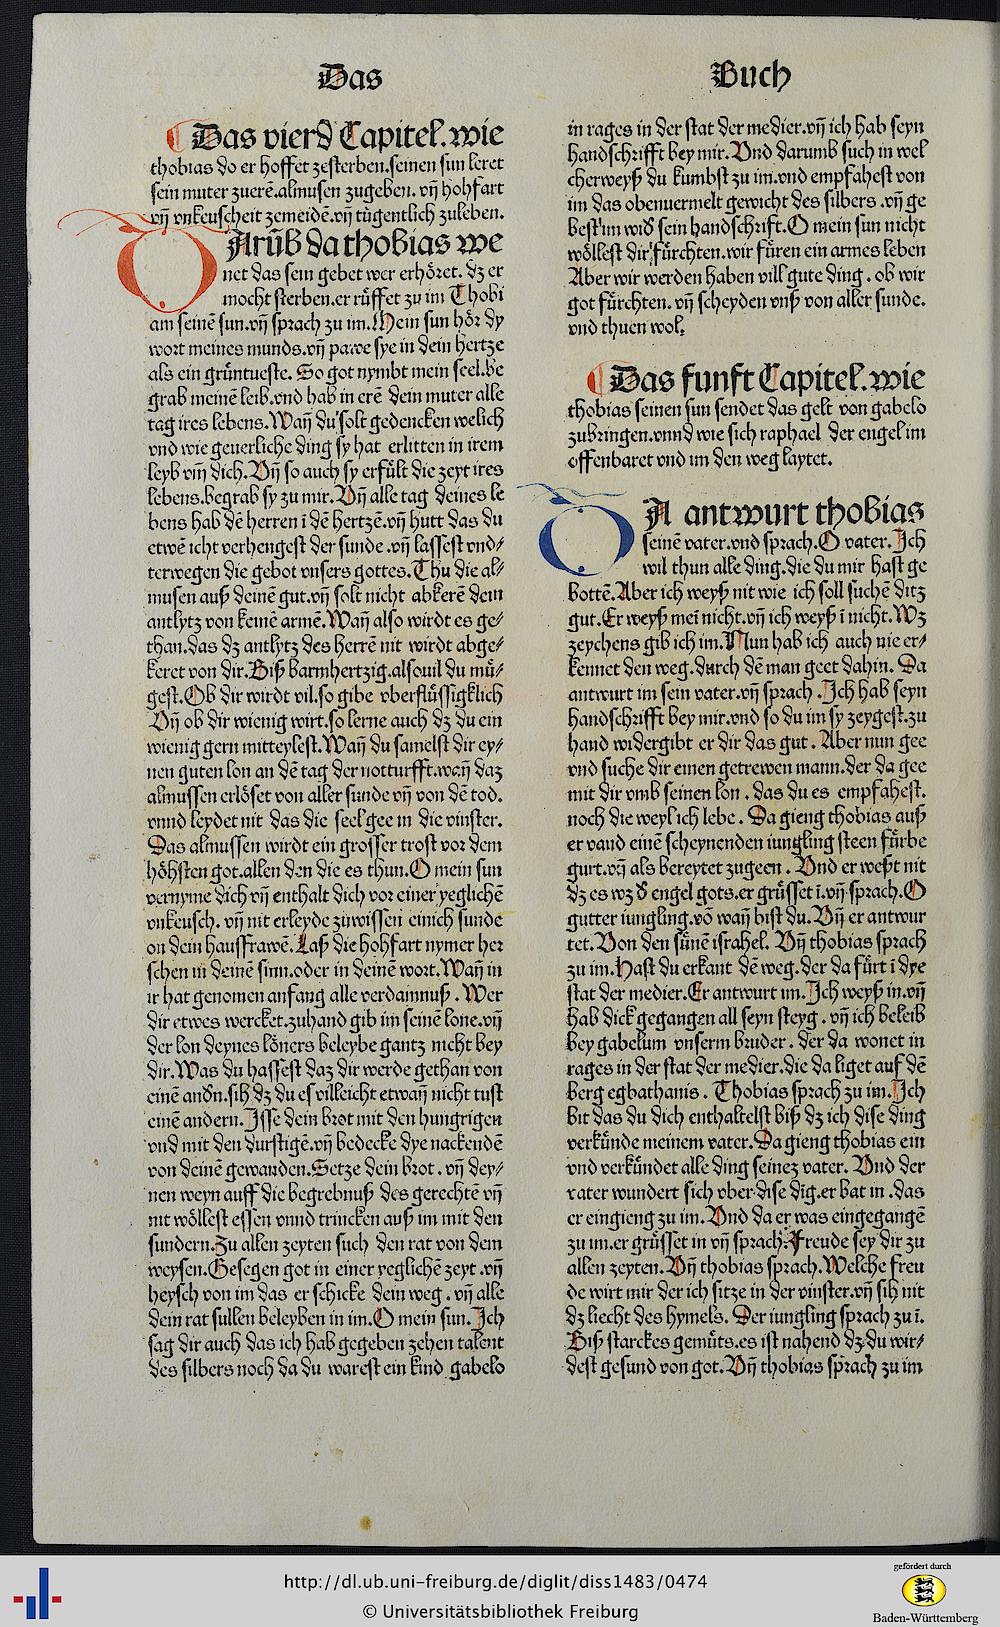 Das
Buch
Das vierd Capitel. wie
thobias do er hoffet zesterben.seinen sun leret
sein muter zuerē.almusen zugeben. vñ hohfart
vñ vnkeuscheit zemeidē.vñ tůgentlich zuleben.
DArūb da thobias we
net das sein gebet wer erhöret. dz er
mocht sterben.er růffet zu im Thobi
am seinē sun.vñ sprach zu im.Mein sun hör dy
wort meines munds.vñ pawe sye in dein hertze
als ein grüntueste. So got nymbt mein seel.be
grab meinē leib.vnd hab in erē dein muter alle
tag ires lebens.Wañ du solt gedencken welich
vnd wie geuerliche ding sy hat erlitten in irem
leyb vm̄ dich.Vñ so auch sy erfült die zeyt ires
lebens.begrab sy zu mir.Vñ alle tag deines le
bens hab dē herren ī dē hertzē.vñ hutt das du
etwē icht verhengest der sunde .vñ lassest vnd⸗
terwegen die gebot vnsers gottes.Thu die al⸗
musen auß deinē gut.vñ solt nicht abkerē dein
antlytz von keinē armē.Wañ also wirdt es ge⸗
than.das dz antlytz des herrē nit wirdt abge⸗
keret von dir.Biß barmhertzig.alsouil du mü⸗
gest.Ob dir wirdt vil.so gibe vberflüssigklich
Vñ ob dir wienig wirt.so lerne auch dz du ein
wienig gern mitteylest.Wañ du samelst dir ey⸗
nen guten lon an dē tag der notturfft.wañ daz
almussen erlöset von aller sunde vñ von dē tod.
vnnd leydet nit das die seel gee in die vinster.
Das almussen wirdt ein grosser trost vor dem
höhsten got.allen den die es thun.O mein sun
vernyme dich vñ enthalt dich vor einer yeglichē
vnkeusch. vñ nit erleyde zuwissen einich sunde
on dein haussfrawē.Laß die hohfart nymer her
schen in deinē sinn.oder in deinē wort.Wañ in
ir hat genomen anfang alle verdamnuß . Wer
dir etwes wercket.zuhand gib im seinē lone.vñ
der lon deynes löners beleybe gantz nicht bey
dir.Was du hassest daz dir werde gethan von
einē andn.sih dz du es villeicht etwañ nicht tust
einē andern. Isse dein brot mit den hungrigen
vnd mit den durstigē.vñ bedecke dye nackendē
von deinē gewanden.Setze dein brot . vñ dey⸗
nen weyn auff die begrebnuß des gerechtē vñ
nit wöllest essen vnnd trincken auß im mit den
sundern.Zu allen zeyten such den rat von dem
weysen.Gesegen got in einer yeglichē zeyt .vñ
heysch von im das er schicke dein weg . vñ alle
dein rat sullen beleyben in im.O mein sun. Ich
sag dir auch das ich hab gegeben zehen talent
des silbers noch da du warest ein kind gabelo
in rages in der stat der medier.vñ ich hab seyn
handschrifft bey mir.Vnd darumb such in wel
cherweyß du kumbst zu im.vnd empfahest von
im das obenuermelt gewicht des silbers .vñ ge
best im wid sein handschrift.O mein sun nicht
wöllest dir fürchten.wir füren ein armes leben
Aber wir werden haben vill gute ding . ob wir
got fürchten. vñ scheyden vnß von aller sunde.
vnd thuen wol.
Das funft Capitel.wie
thobias seinen sun sendet das gelt von gabelo
zubringen.vnnd wie sich raphael der engel im
offenbaret vnd im den weg laytet.
DA antwurt thobias
seinē vater.vnd sprach.O vater. Ich
wil thun alle ding.die du mir hast ge
bottē.Aber ich weyß nit wie ich soll suchē ditz
gut.Er weyß mei nicht.vñ ich weyß ī nicht.Wz
zeychens gib ich im.Nun hab ich auch nie er⸗
kennet den weg.durch dē man geet dahin. Da
antwurt im sein vater.vñ sprach .Ich hab seyn
handschrifft bey mir.vnd so du im sy zeygest.zu
hand widergibt er dir das gut . Aber nun gee
vnd suche dir einen getrewen mann.der da gee
mit dir vmb seinen lon . das du es empfahest.
noch die weyl ich lebe . Da gieng thobias auß
er vand einē scheynenden iungling steen fürbe
gurt.vñ als bereytet zugeen . Vnd er west nit
dz es wz d engel gots.er grüsset ī.vñ sprach.O
gutter iungling.vō wañ bist du.Vñ er antwur
tet.Von den sünē israhel. Vñ thobias sprach
zu im.Hast du erkant dē weg.der da fürt ī dye
stat der medier.Er antwurt im.Ich weyß in.vñ
hab dick gegangen all seyn steyg . vñ ich beleib
bey gabelum vnserm bruder . der da wonet in
rages in der stat der medier.die da liget auf dē
berg egbathanis . Thobias sprach zu im.Ich
bit das du dich enthaltelst biß dz ich dise ding
verkünde meinem vater.Da gieng thobias ein
vnd verkündet alle ding seinez vater. Vnd der
vater wundert sich vber dise dīg.er bat in .das
er eingieng zu im.Vnd da er was eingegangē
zu im.er grüsset in vñ sprach.Freude sey dir zu
allen zeyten.Vñ thobias sprach.Welche freu
de wirt mir der ich sitze in der vinster.vñ sih nit
dz liecht des hymels. Der iungling sprach zu ī.
Biß starckes gemüts.es ist nahend dz du wir⸗
dest gesund von got.Vñ thobias sprach zu im
http://dl.ub.uni-freiburg.de/diglit/diss1483/0474
© Universitätsbibliothek Freiburg
gefördert durch
Baden-Württemberg